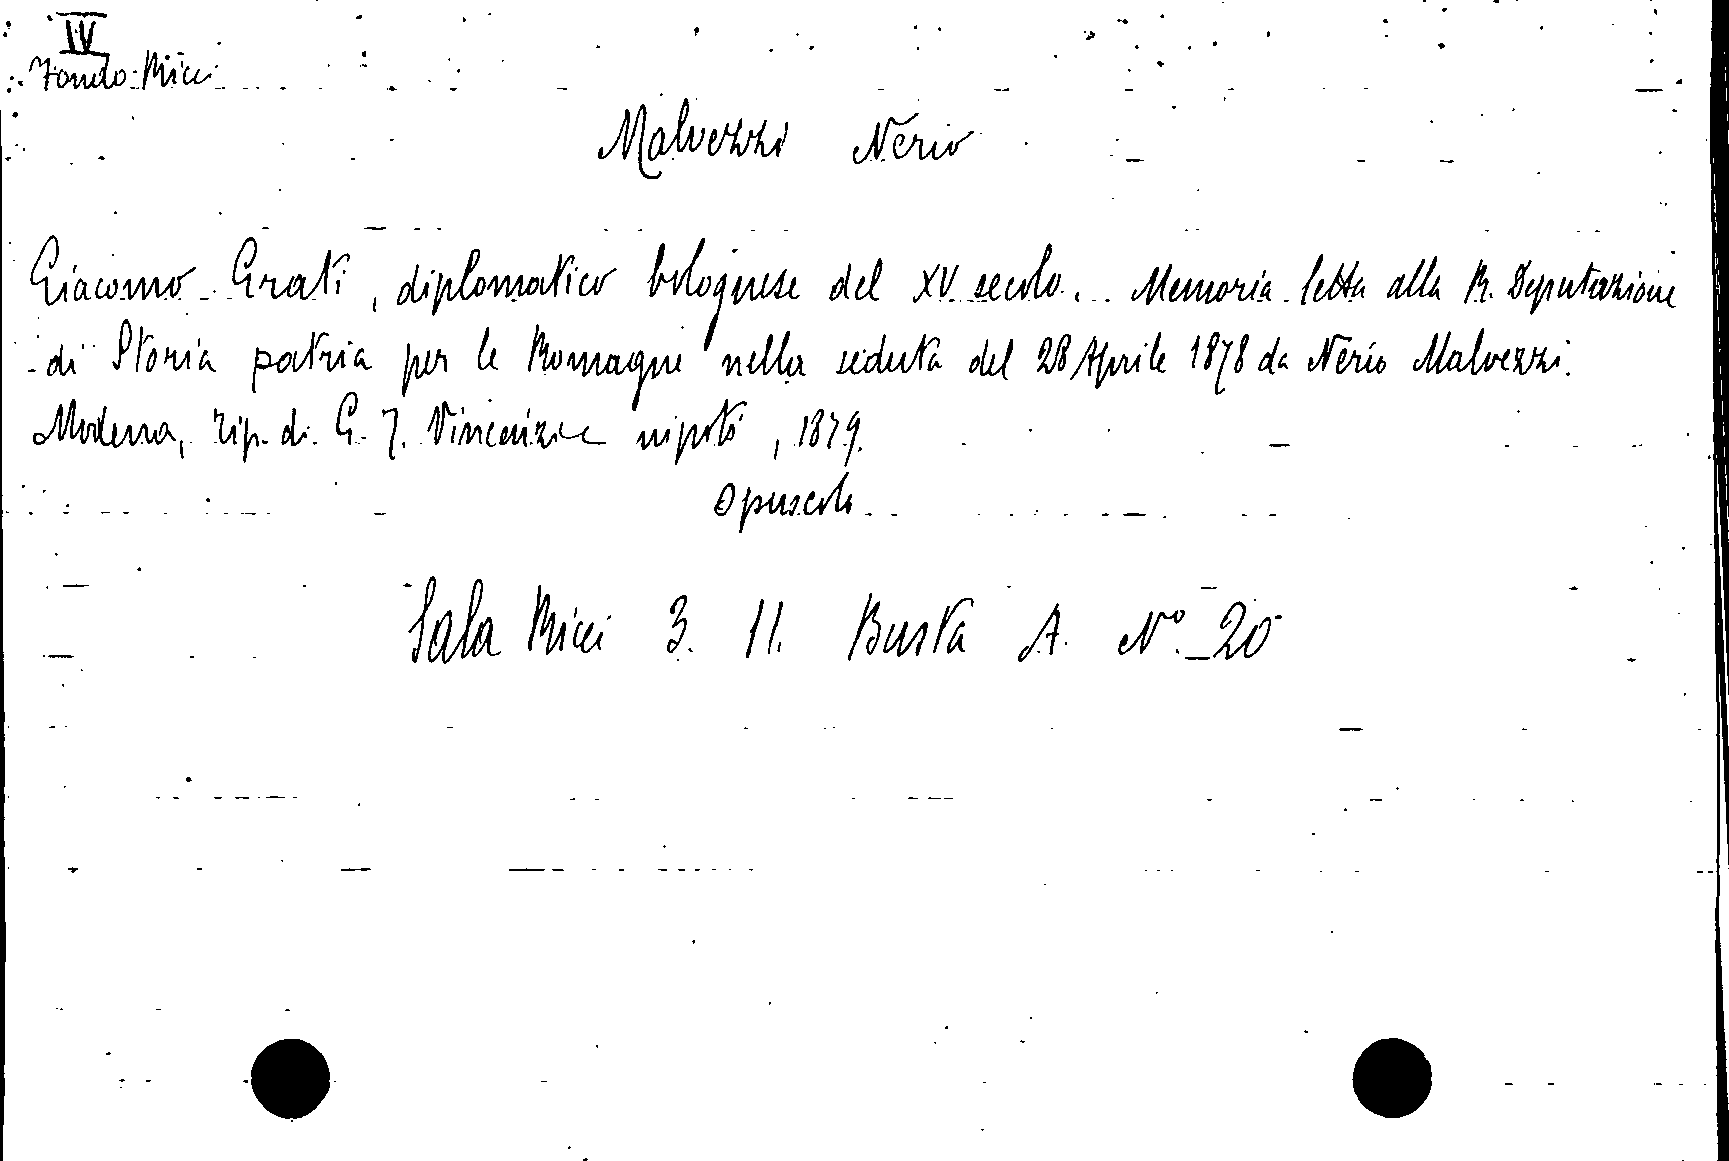 IV
Fondo Ricci
Malvezzi Nerio
Giacomo Grati, diplomatico bolognese del XV secolo. Memoria letta alla R. Deputazione
di Storia patria per le Romagne nella seduta del 28 Aprile 1878 da Nerio Malvezzi.
Modena, Tip. di G. T. Vincenzi e nipoti, 1879.
Opuscolo
Sala Ricci 3. 11. Busta A. N° 20